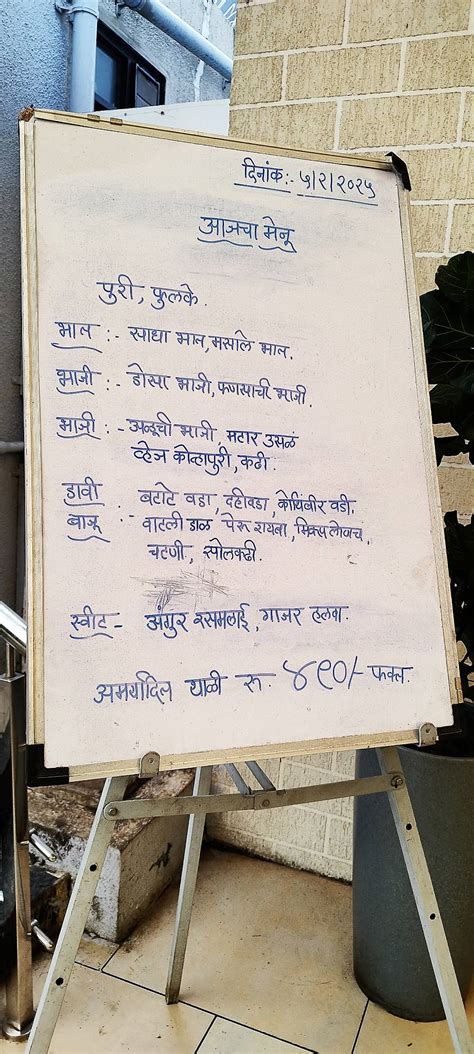 दिनांक:- ५/२/२०२५
आजचा मेनू
पुरी, फुलके.
भात :- साधा भात, मसाले भात.
भाजी :- डोसा भाजी, फणसाची भाजी.
भाजी :- अळूची भाजी, मटार उसळ
व्हेज कोल्हापुरी, कढी.
डावी बटाटे वडा, दहीवडा, कोथिंबीर वडी.
बाजू :- वाटली डाळ पेरू रायता, मिक्स लोणचं,
चटणी, सोलकढी.
स्वीट - अंगुर रसमलाई, गाजर हलवा.
अमर्यादित थाळी रु. ४९०/- फक्त.